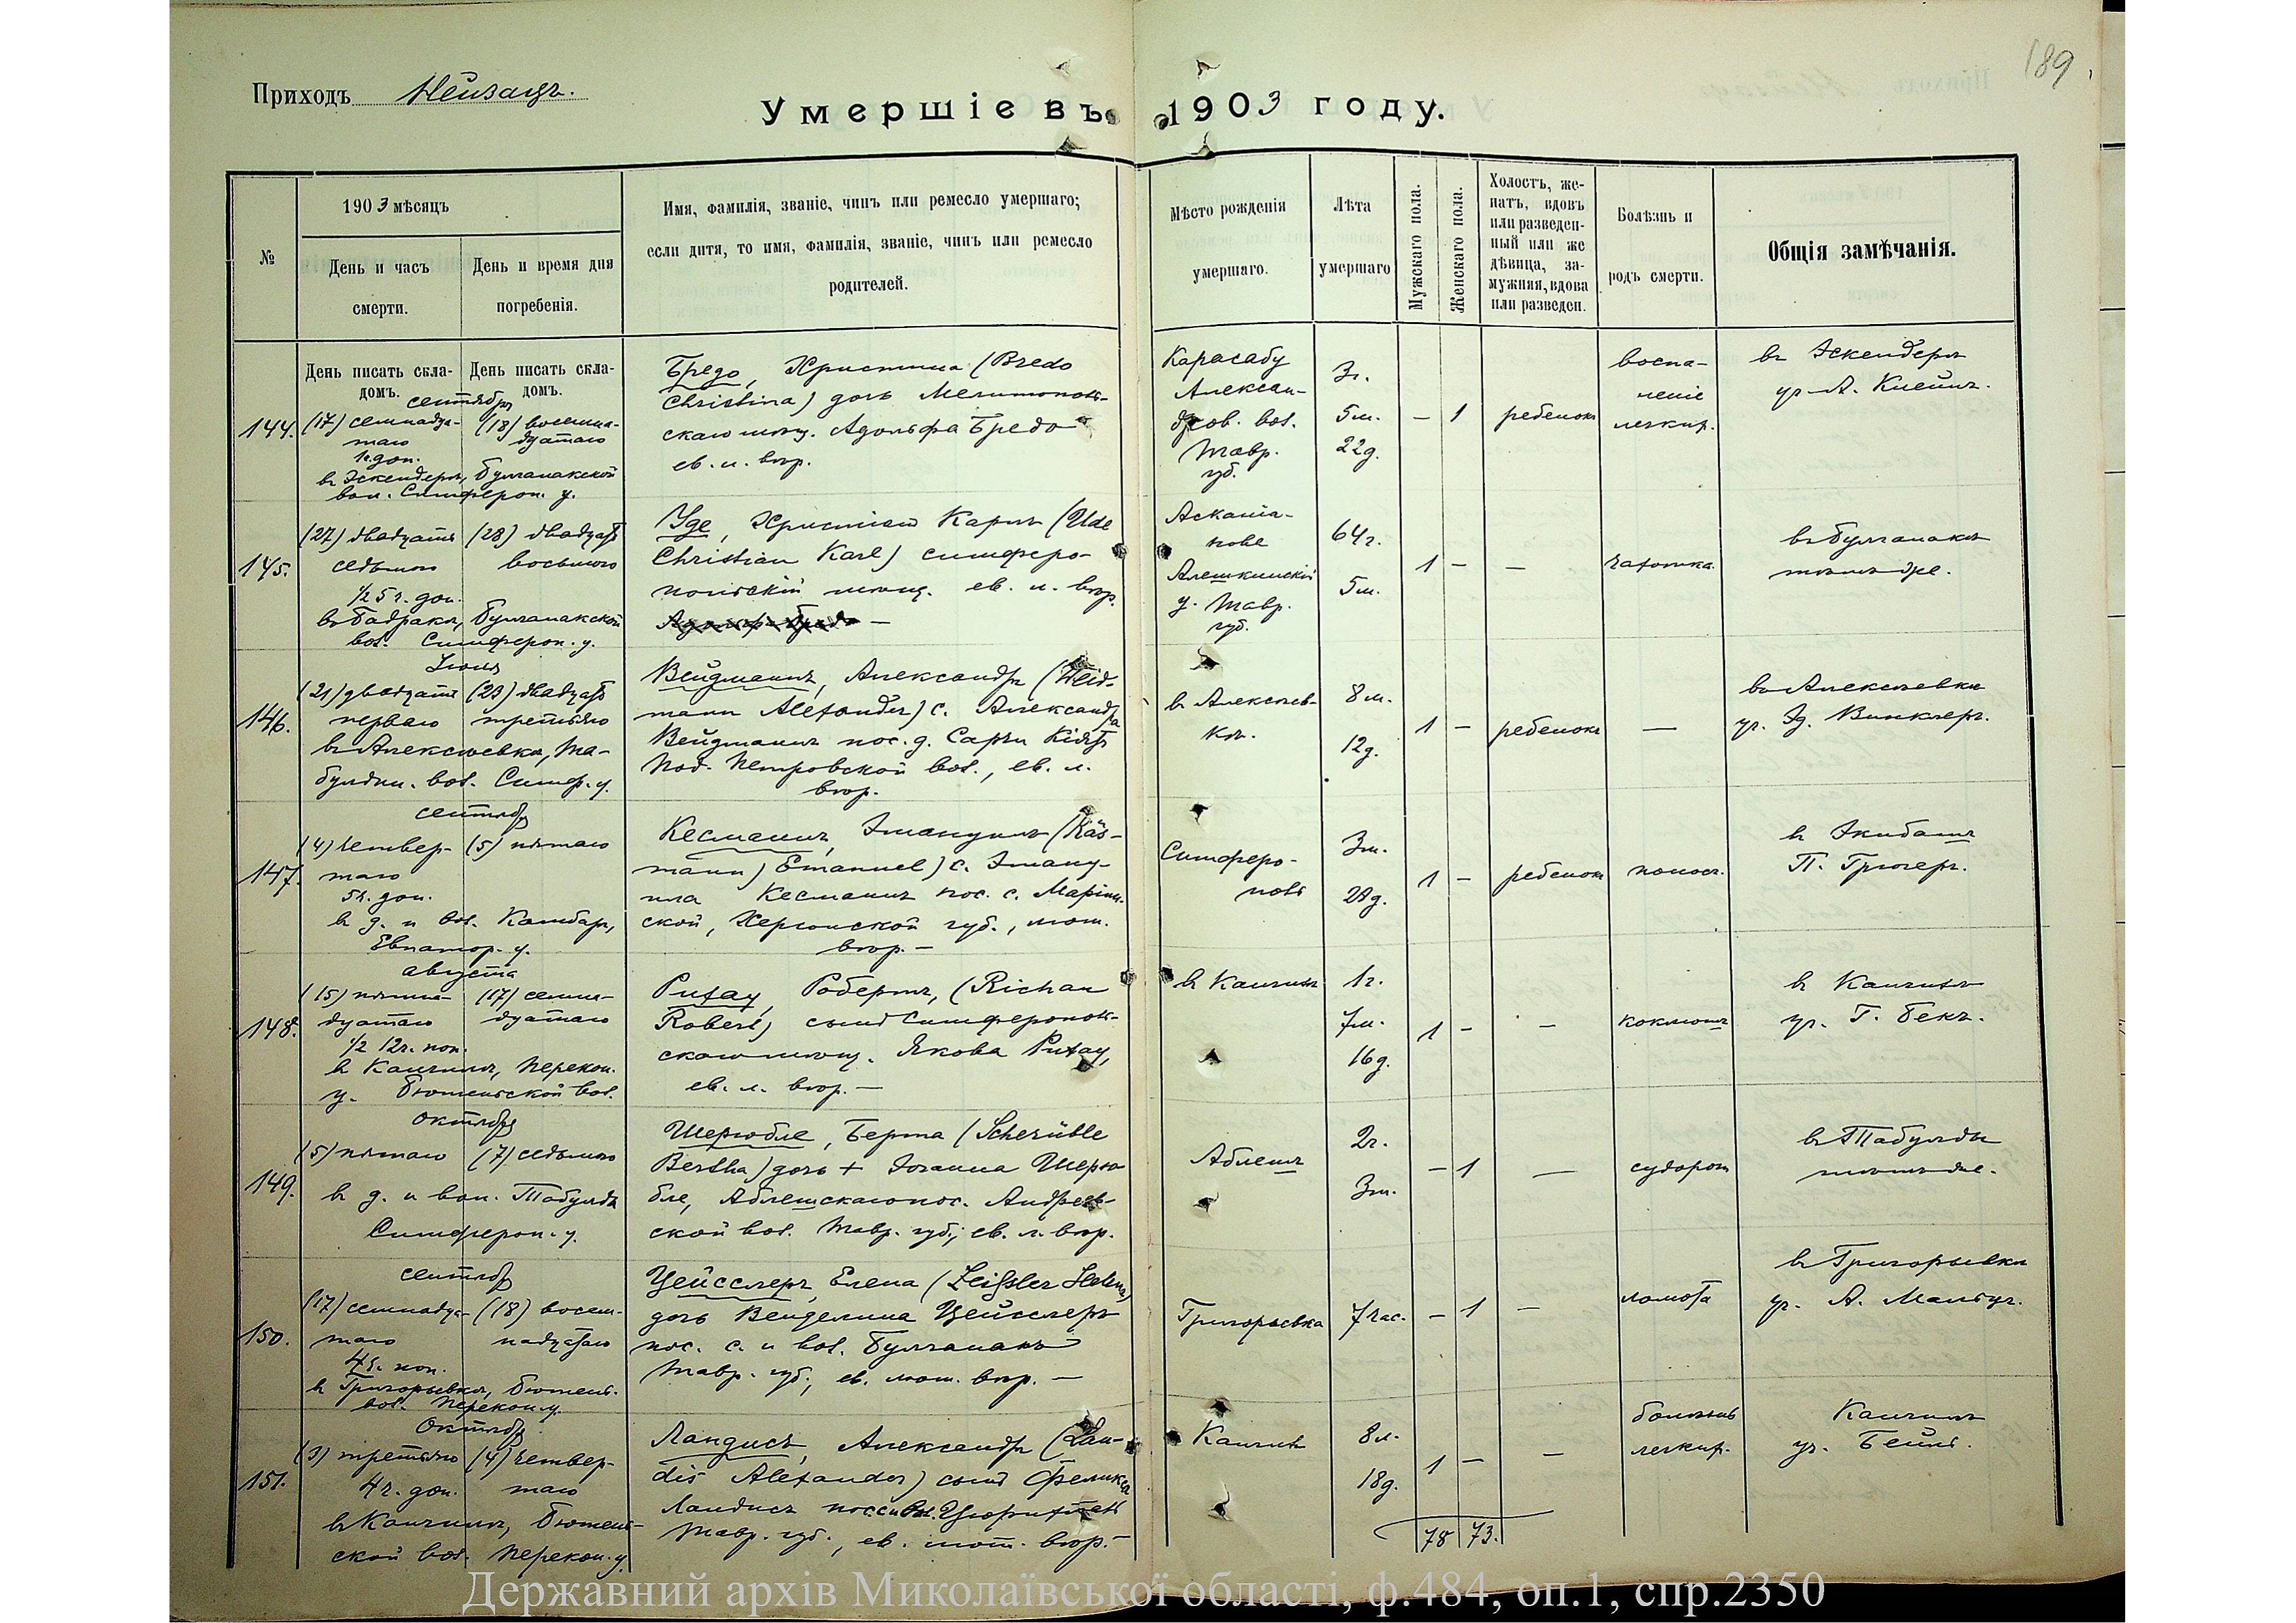 189.
Приходъ Нейзацъ.
Умершіе въ 1903 году.
№
1903 мѣсяцъ
День и часъ
смерти.
День и время дня
погребенія.
Имя, фамилія, званіе, чинъ или ремесло умершаго;
если дитя, то имя, фамилія, званіе, чинъ или ремесло
родителей.
Мѣсто рожденія
умершаго.
Лѣта
умершаго
Мужскаго пола.
Женскаго пола.
Холостъ, же-
натъ, вдовъ
или разведен-
ный или же
дѣвица, за-
мужняя, вдова
или разведен.
Болѣзнь и
родъ смерти.
Общія замѣчанія.
День писать скла-
домъ.
День писать скла-
домъ.
144.
сентября
(17) семнадца-
таго
1ч. доп.
(18) восемна-
дцатаго
въ Эскендеръ, Булганакской
вол. Симфероп. у.
Бредо, Христина (Bredo
Christina) дочь Мелитополь-
скаго мѣщ. Адольфа Бредо
ев. л. вѣр.
Карасабу
Алексан-
дров. вол.
Тавр.
губ.
3г.
5м.
22д.
— 1
ребенокъ
воспа-
леніе
легкихъ.
въ Эскендеръ
уч. А. Клейнъ.
145.
(27) двадцать
седьмого
1/2 5 ч. доп.
(28) двадцать
восьмого
въ Бадракъ, Булганакской
вол. Симфероп. у.
Уде, Христіанъ Карлъ (Ude
Christian Karl) симферо-
польскій мѣщ. ев. л. вѣр.
Асканіа-
нове
Алешкинскій
у. Тавр.
губ.
64г.
5м.
1 — —
чахотка.
въ Булганакѣ
тѣмъ-же.
146.
Іюля
(21) двадцать
перваго
(23) двадцать
третьяго
въ Алексѣевкѣ, Та-
булдин. вол. Симф. у.
Вейдманъ, Александръ (Weid-
mann Alexander) с. Александра
Вейдманъ пос. д. Сарты Кіятъ
Под. Петровской вол., ев. л.
вѣр.
въ Алексѣев-
кѣ.
8м.
12д.
1 —
ребенокъ
—
въ Алексѣевкѣ
уч. Эд. Винклеръ.
147.
сентября
(4) четвер-
таго
5ч. доп.
(5) пятаго
въ д. и вол. Камбаръ,
Евпатор. у.
Кесманъ, Эмануилъ (Käs-
mann) Emanuel) с. Эману-
ила Кесманъ пос. с. Маріин-
ской, Херсонской губ., лют.
вѣр. —
Симферо-
поль
3м.
28д.
1 —
ребенокъ
поносъ.
въ Экибашъ
П. Грюгеръ.
148.
августа
(15) пятна-
дцатаго
1/2 12ч. поп.
(17) семна-
дцатаго
въ Кангилъ, Перекоп.
у. Бютеньской вол.
Рихау, Робертъ, (Richau
Robert) сынъ Симферополь-
скаго мѣщ. Якова Рихау,
ев. л. вѣр. —
въ Кангилъ
1г.
7м.
16д.
1 — —
коклюшъ
въ Кангилѣ
уч. Г. Бекъ.
149.
октября
(5) пятаго
(7) седьмого
въ д. и вол. Табулды
Симфероп. у.
Шерюбле, Берта (Scherüble
Bertha) дочь + Іоганна Шерю
бле, Аблешскаго пос. Андреев-
ской вол. Тавр. губ., ев. л. вѣр.
Аблешъ
2г.
3м.
— 1 —
судороги
въ Табулды
тѣмъ-же.
150.
сентября
(17) семнадца-
таго
4ч. поп.
(18) восем-
надцатаго
въ Григорьевкѣ, Бютень.
вол. Перекоп. у.
Цейсслеръ, Елена (Zeissler Helena)
дочь Венделина Цейсслеръ
пос. с. и вол. Булганакъ
Тавр. губ., ев. лют. вѣр. —
Григорьевка
7 час.
— 1 —
ломота
въ Григорьевкѣ
уч. А. Мальцъ.
151.
Октября
(3) третьяго
4ч. доп.
(4) четвер-
таго
въ Кангилъ, Бютень-
ской вол. Перекоп. у.
Ландисъ, Александръ (Lan-
dis Alexander) сынъ Феликса
Ландисъ пос. с. и вол. Цюрихталь
Тавр. губ., ев. лют. вѣр. —
Кангилъ
8л.
18д.
1 — —
болѣзнь
легкихъ.
Кангилъ
уч. Бейль.
78 73.
Державний архів Миколаївської області, ф.484, оп.1, спр.2350